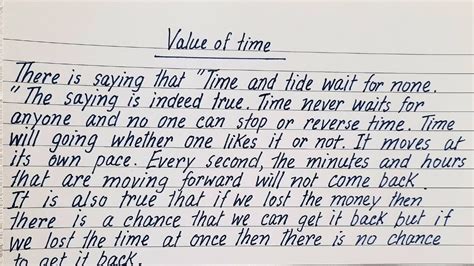 Value of time
There is saying that "Time and tide wait for none.
" The saying is indeed true. Time never waits for
anyone and no one can stop or reverse time. Time
will going whether one likes it or not. It moves at
its own pace. Every second, the minutes and hours
that are moving forward will not come back.
It is also true that if we lost the money then
there is a chance that we can get it back but if
we lost the time at once then there is no chance
to get it back.